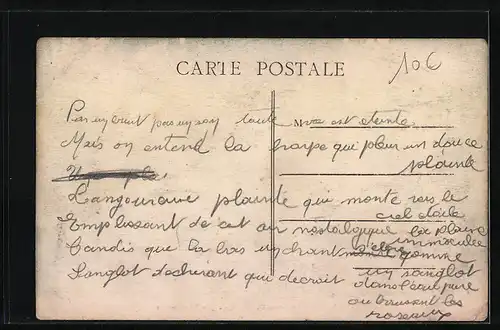 CARTE POSTALE
10€
Pas un bruit pas un son toute vie est éteinte
Mais on entend la harpe qui pleur un douce plainte
Langoureuse plainte qui monte vers le ciel étoilé
Emplissant de cet air nostalgique la plaine immaculée
Tandis que la bas un chant s'élève comme un sanglot
Sanglot déchirant qui décroit dans l'eau pure
ou bruissent les roseaux